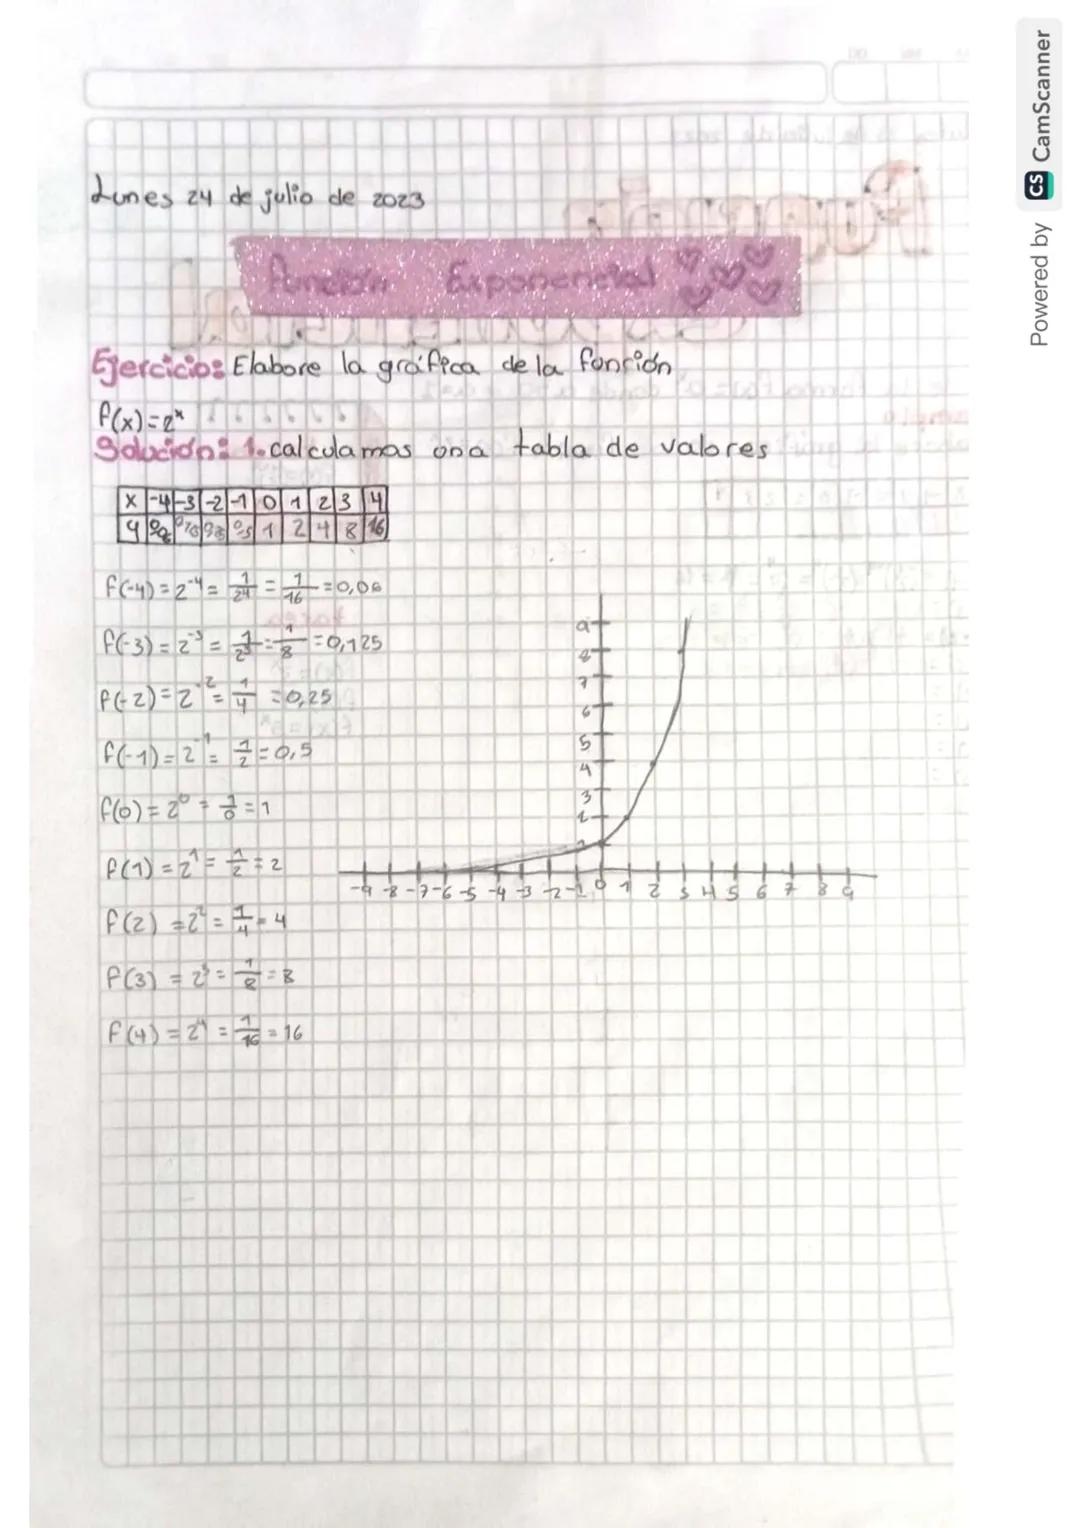 Lunes 24 de julio de 2023
Función Exponencial
Ejercicio: Elabore la gráfica de la función
f(x)=2ˣ
Solución: 1. calculamos una tabla de valores
x -4 -3 -2 -1 0 1 2 3 4
y 1 2 4 8 16
f(-4) = 2⁻⁴ = 1/24 = 1/16 = 0,06
f(-3) = 2⁻³ = 1/2³ = 1/8 = 0,125
f(-2) = 2⁻² = 1/4 = 0,25
f(-1) = 2⁻¹ = 1/2 = 0,5
f(0) = 2⁰ = 1/0 = 1
f(1) = 2¹ = 1/2 = 2
f(2) = 2² = 1/4 = 4
f(3) = 2³ = 1/8 = 8
f(4) = 2⁴ = 1/16 = 16
9
8
7
6
5
4
3
2
1
-9 -8 -7 -6 -5 -4 -3 -2 -1 0 1 2 3 4 5 6 7 8 9
Powered by CS CamScanner